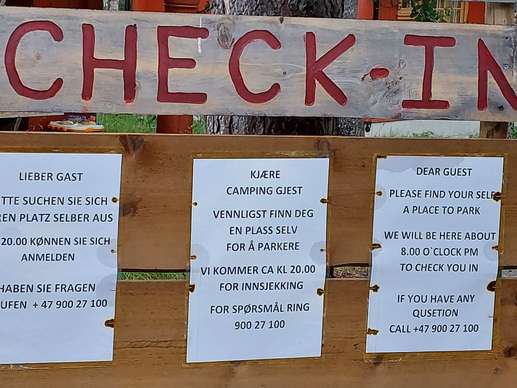 CHECK-IN
LIEBER GAST
TTE SUCHEN SIE SICH
REN PLATZ SELBER AUS
20.00 KØNNEN SIE SICH
ANMELDEN
HABEN SIE FRAGEN
UFEN + 47 900 27 100
KJÆRE
CAMPING GJEST
VENNLIGST FINN DEG
EN PLASS SELV
FOR Å PARKERE
VI KOMMER CA KL 20.00
FOR INNSJEKKING
FOR SPØRSMÅL RING
900 27 100
DEAR GUEST
PLEASE FIND YOUR SELF
A PLACE TO PARK
WE WILL BE HERE ABOUT
8.00 O`CLOCK PM
TO CHECK YOU IN
IF YOU HAVE ANY
QUSETION
CALL +47 900 27 100